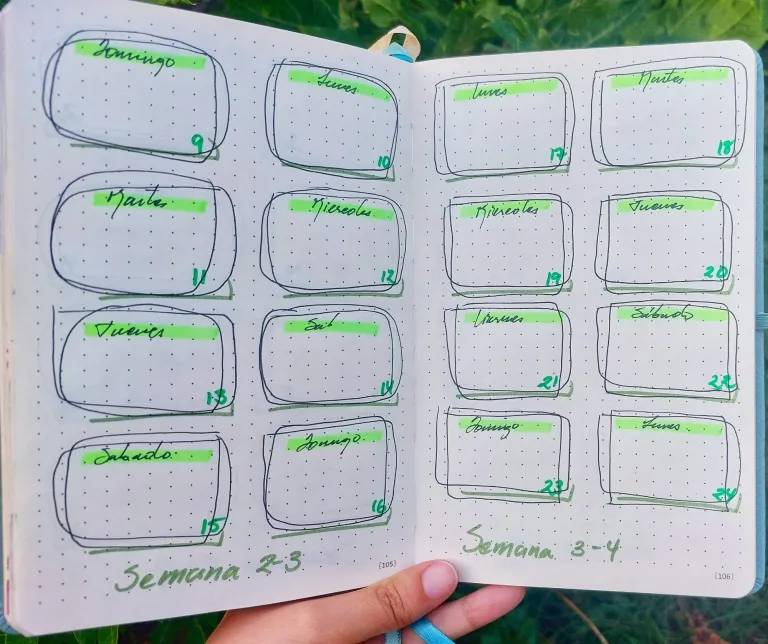 Domingo
9
Lunes
10
Martes
11
Miercoles
12
Jueves
13
Sab
14
Sabado
15
Domingo
16
Semana 2-3
[105]
Lunes
17
Martes
18
Miercoles
19
Jueves
20
Viernes
21
Sábado
22
Domingo
23
Lunes
24
Semana 3-4
[106]